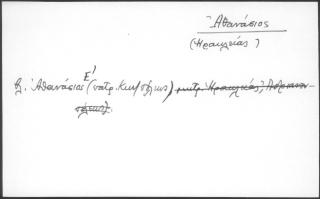 Ἀθανάσιος
(Ἡρακλείας)
Ε'
βλ. Ἀθανάσιος (πατρ. Κων/πόλεως) μητρ. Ἡρακλείας,